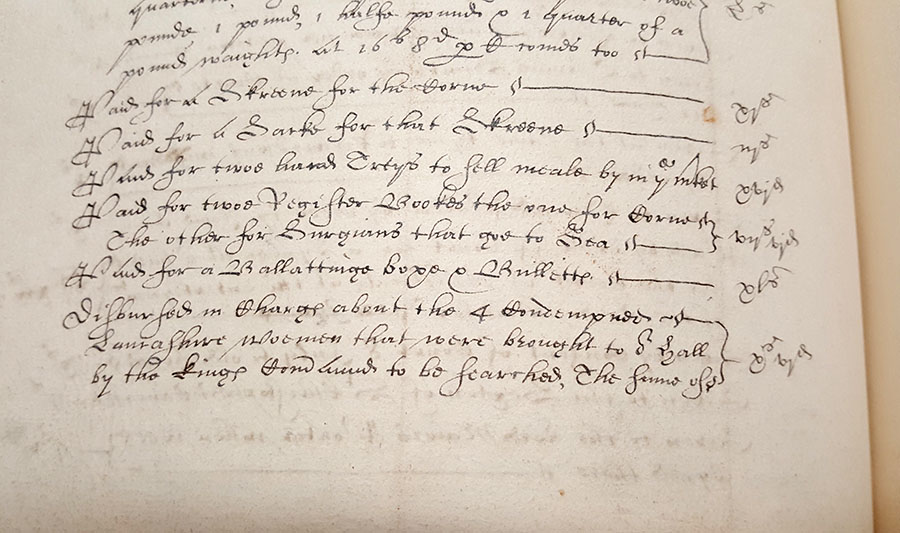 quarterne twoe
pounde 1 pound, 1 halfe pound & 1 quarter of a
pound waight. At 16s 8d p comes too
Paid for a Skreene for the Corne xxs
Paid for a Sacke for that Skreene iijs
Paid for twoe hand Treys to sell meale by in ye mket xvjd
Paid for twoe Register Bookes the one for Corne
The other for Surgians that goe to Sea vijs vjd
Paid for a Ballattinge boxe & Bullette xls
Disbursed in Charge about the 4 Condempned
Lancashire woemen that were brought to or Hall
by the kinge Comaund to be searched, The sume of xs vjd